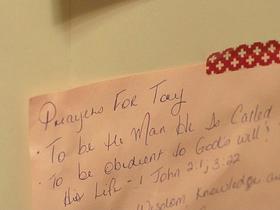 Prayers For Tay
· To be the Man He Is Called
· To be obedient to God's will;
His Life - 1 John 2:1, 3:22
Wisdom, Knowledge an